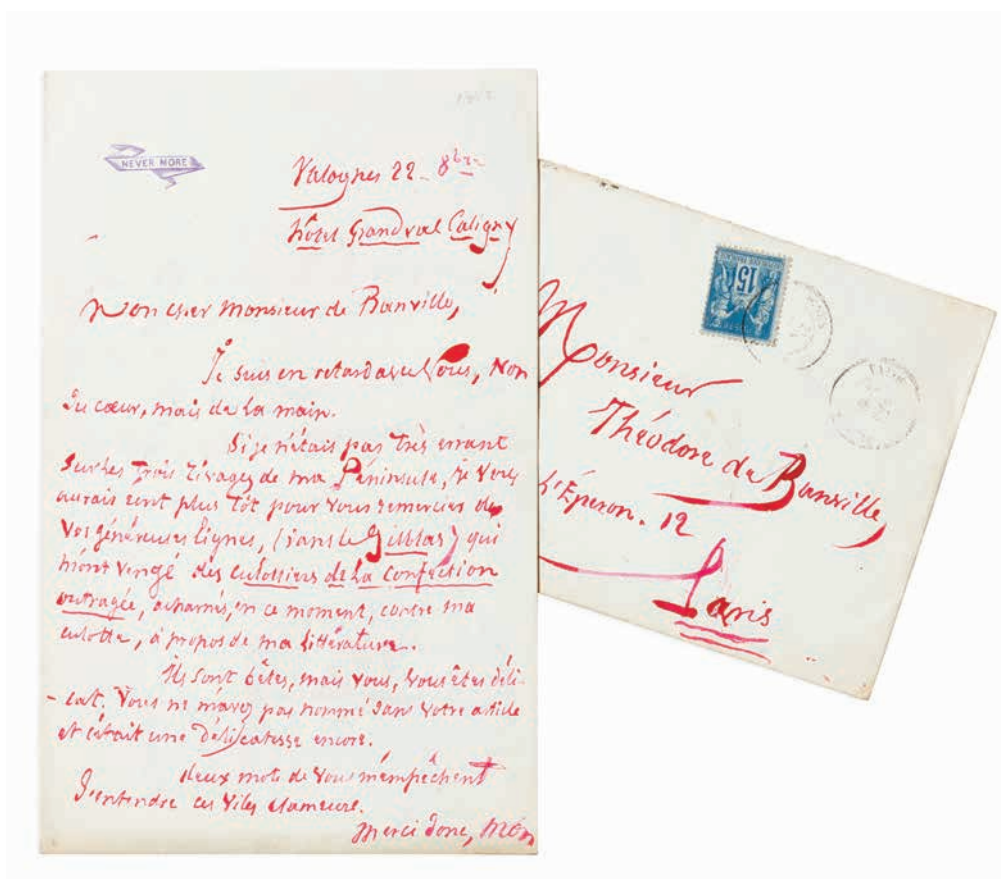 NEVER MORE
Valognes 22 - 8bre
hôtel Grandval Caligny
Mon cher Monsieur de Banville,
Je suis en retard avec Vous, Non
Du cœur, mais de La main.
Si je n'étais pas Très errant
Sur les Trois rivages de ma Péninsule, je Vous
aurais écrit plus Tôt pour Vous remercier de
Vos généreuses lignes, (dans le Gil blas) qui
m'ont vengé des culottiers de La Confection
outragée, acharnés, en ce moment, contre ma
culotte, à propos de ma littérature.
Ils sont bêtes, mais vous, Vous êtes déli-
- cat. Vous ne m'avez pas nommé dans Votre article
et c'était une Délicatesse encore.
deux mots de Vous m'empêchent
D'entendre ces Viles clameurs.
Merci donc, mon
15
Monsieur
Théodore de Banville,
L'Éperon. 12
Paris